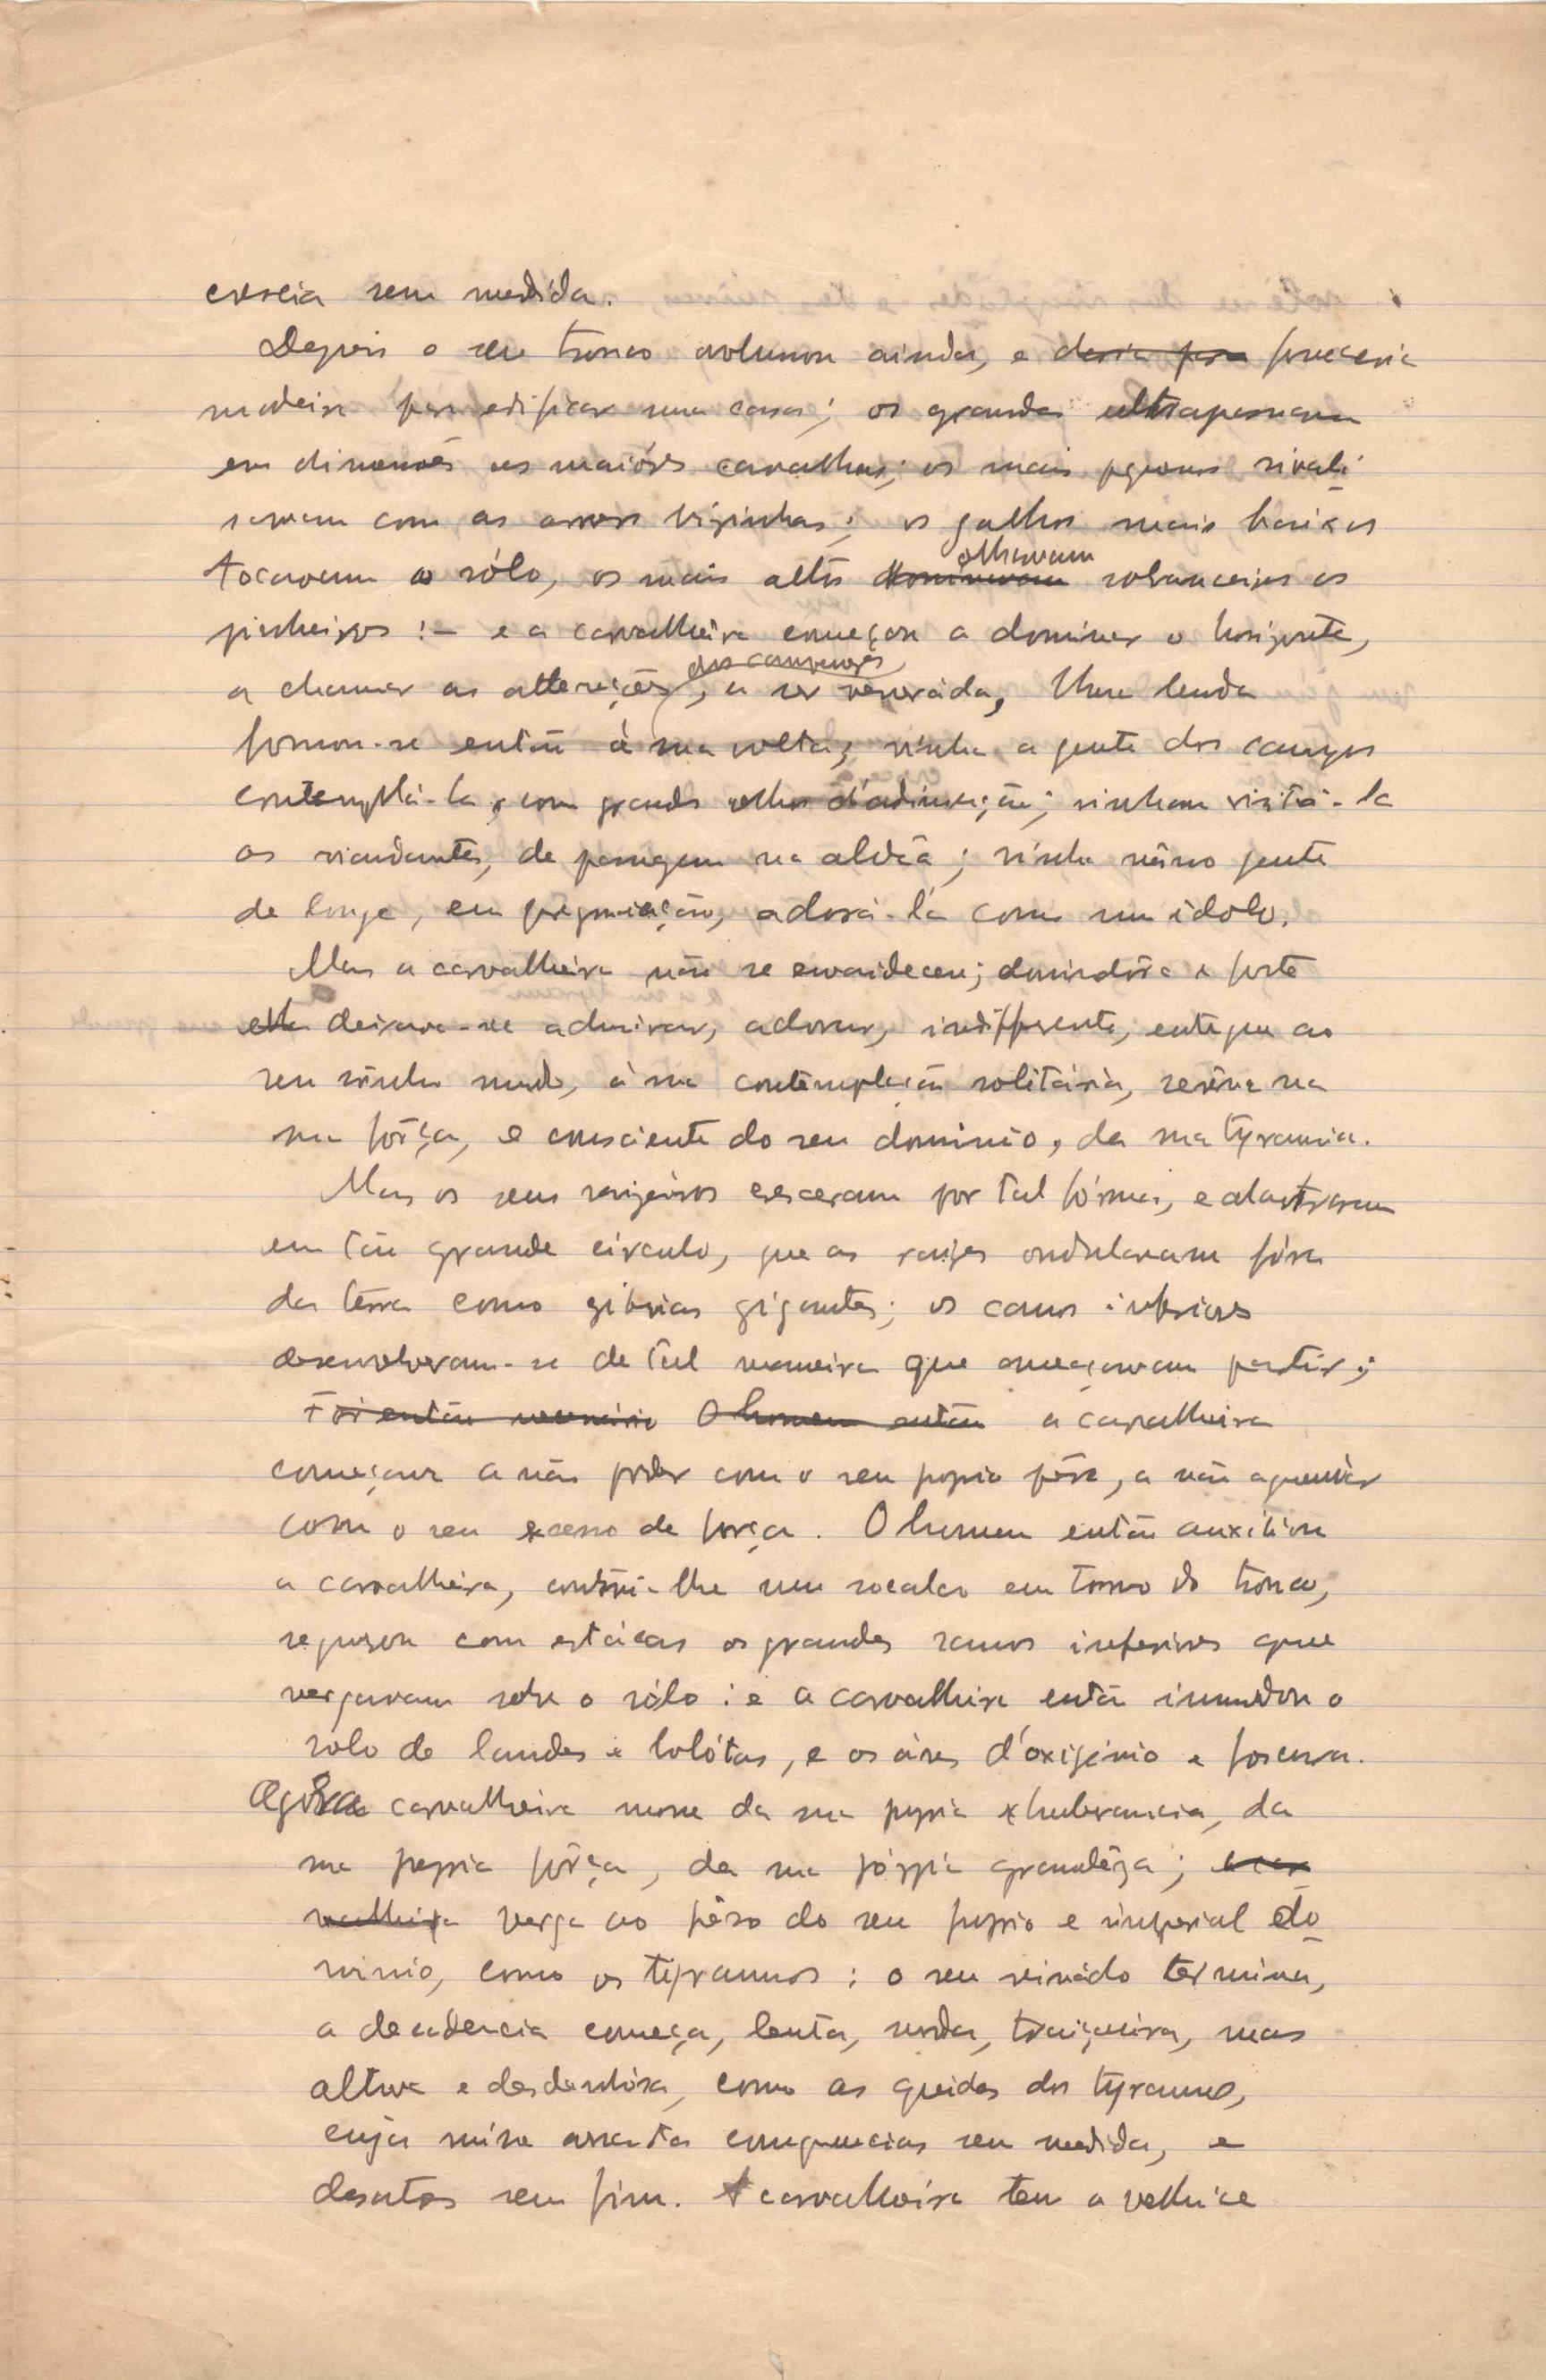 crescia sem medida.
Depois o seu tronco avolumou ainda, e daria para forneceria
madeira para edificar uma casa; os grandes ultrapassavam
em dimensões os maióres carvalhos; os mais pequenos rivali-
savam com as arvores vizinhas; os galhos mais baixos
tocavam o sólo, os mais altos dominavam olhavam sobranceiros os
pinheiros :- e a carvalheira começou a dominar o horizonte,
a chamar as attenções dos camponezes, a ser venerada, Uma lenda
formou-se então á sua volta; vinha a gente dos campos
contemplá-la, com grandes olhos d'admiração; vinham visitá-la
os viandantes, de passagem na aldeã; vinha mêsmo gente
de longe, em peregrinação, adorá-la como um idolo.
Mas a carvalheira não se envaideceu; dominadôra e forte
ella deixava-se admirar, adorar, indifferente, entregue ao
seu sonho mudo, á sua contemplação solitária, serêna na
sua fôrça, e consciente do seu dominio, da sua tyrannia.
Mas os seus cresceram por tal fórma, e alastraram
em tão grande circulo, que as raizes ondularam fóra
da terra como giboias gigantes; os ramos inferiores
desenvolveram-se de tal maneira que ameaçavam partir;
Foi então necessário O homem então a carvalheira
começava a não poder com o seu proprio pêso, a não aguentar
com o seu excesso de força. O homem então auxiliou
a carvalheira, constroi-lhe um socalco em torno do tronco,
segurou com estácas os grandes ramos inferiores que
vergavam sobre o sólo: e a carvalheira então inundou o
solo de landes e bolótas, e os áres d'oxigénio e
Agóra a carvalheira morre da sua propria exhuberancia, da
sua propria fôrça, da sua própria grandêza; a car-
valheira verga ao pêso do seu proprio e imperial do-
minio, como os tyrannos: o seu reinádo termina,
a decadencia começa, lenta, surda, traiçoeira, mas
altiva e desdenhósa, como as quédas dos tyrannos,
cuja ruína arrasta consequencias sem medida, e
desastres sem fim. A carvalheira tem a velhice